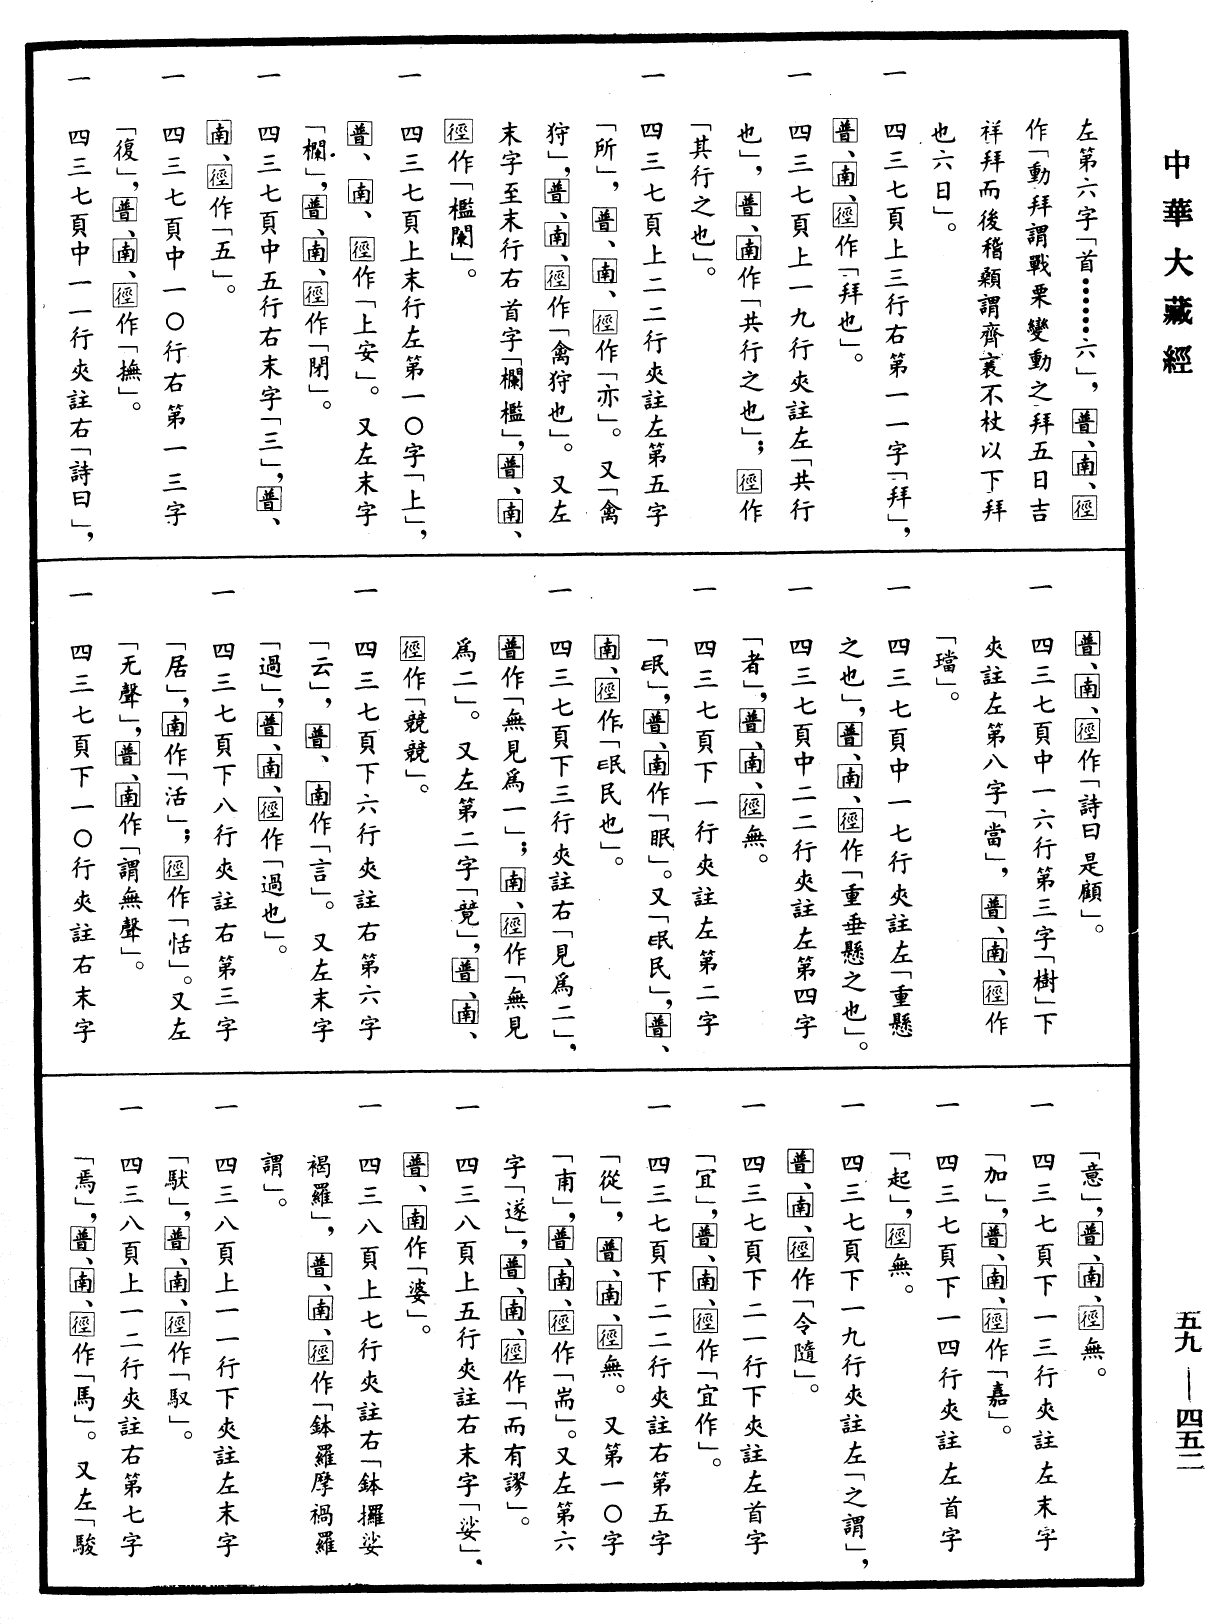 中華大藏經
左第六字「首……六」，普、南、徑
作「動拜謂戰栗變動之拜五日吉
祥拜而後稽顙謂齊衰不杖以下拜
也六日」。
一 四三七頁上三行右第一一字「拜」，
普、南、徑作「拜也」。
一 四三七頁上一九行夾註左「共行
也」，普、南作「共行之也」；徑作
「其行之也」。
一 四三七頁上二二行夾註左第五字
「所」，普、南、徑作「亦」。又「禽
狩」，普、南、徑作「禽狩也」。又左
末字至末行右首字「欄檻」，普、南、
徑作「檻闌」。
一 四三七頁上末行左第一〇字「上」，
普、南、徑作「上安」。又左末字
「欄」，普、南、徑作「閉」。
一 四三七頁中五行右末字「三」，普、
南、徑作「五」。
一 四三七頁中一〇行右第一三字
「復」，普、南、徑作「撫」。
一 四三七頁中一一行夾註右「詩曰」，
普、南、徑作「詩曰是顧」。
一 四三七頁中一六行第三字「樹」下
夾註左第八字「當」，普、南、徑作
「璫」。
一 四三七頁中一七行夾註左「重懸
之也」，普、南、徑作「重垂懸之也」。
一 四三七頁中二二行夾註左第四字
「者」，普、南、徑無。
一 四三七頁下一行夾註左第二字
「眠」，普、南作「眠」。又「㞑民」，普、
南、徑作「㞑民也」。
一 四三七頁下三行夾註右「見爲二」，
普作「無見爲一」；南、徑作「無見
爲二」。又左第二字「竟」，普、南、
徑作「競競」。
一 四三七頁下六行夾註右第六字
「云」，普、南作「言」。又左末字
「過」，普、南、徑作「過也」。
一 四三七頁下八行夾註右第三字
「居」，南作「活」；徑作「恬」。又左
「无聲」，普、南作「謂無聲」。
一 四三七頁下一〇行夾註右末字
「意」，普、南、徑無。
一 四三七頁下一三行夾註左末字
「加」，普、南、徑作「嘉」。
一 四三七頁下一四行夾註左首字
「起」，徑無。
一 四三七頁下一九行夾註左「之謂」，
普、南、徑作「令隨」。
一 四三七頁下二一行下夾註左首字
「宜」，普、南、徑作「宜作」。
一 四三七頁下二二行夾註右第五字
「從」，普、南、徑無。又第一〇字
「甫」，普、南、徑作「耑」。又左第六
字「遂」，普、南、徑作「而有謬」。
一 四三八頁上五行夾註右末字「娑」，
普、南作「婆」。
一 四三八頁上七行夾註右「鉢攞娑
褐羅」，普、南、徑作「鉢羅摩禍羅
謂」。
一 四三八頁上一一行下夾註左末字
「馱」，普、南、徑作「馭」。
一 四三八頁上一二行夾註右第七字
「焉」，普、南、徑作「馬」。又左「駿
五九—四五二